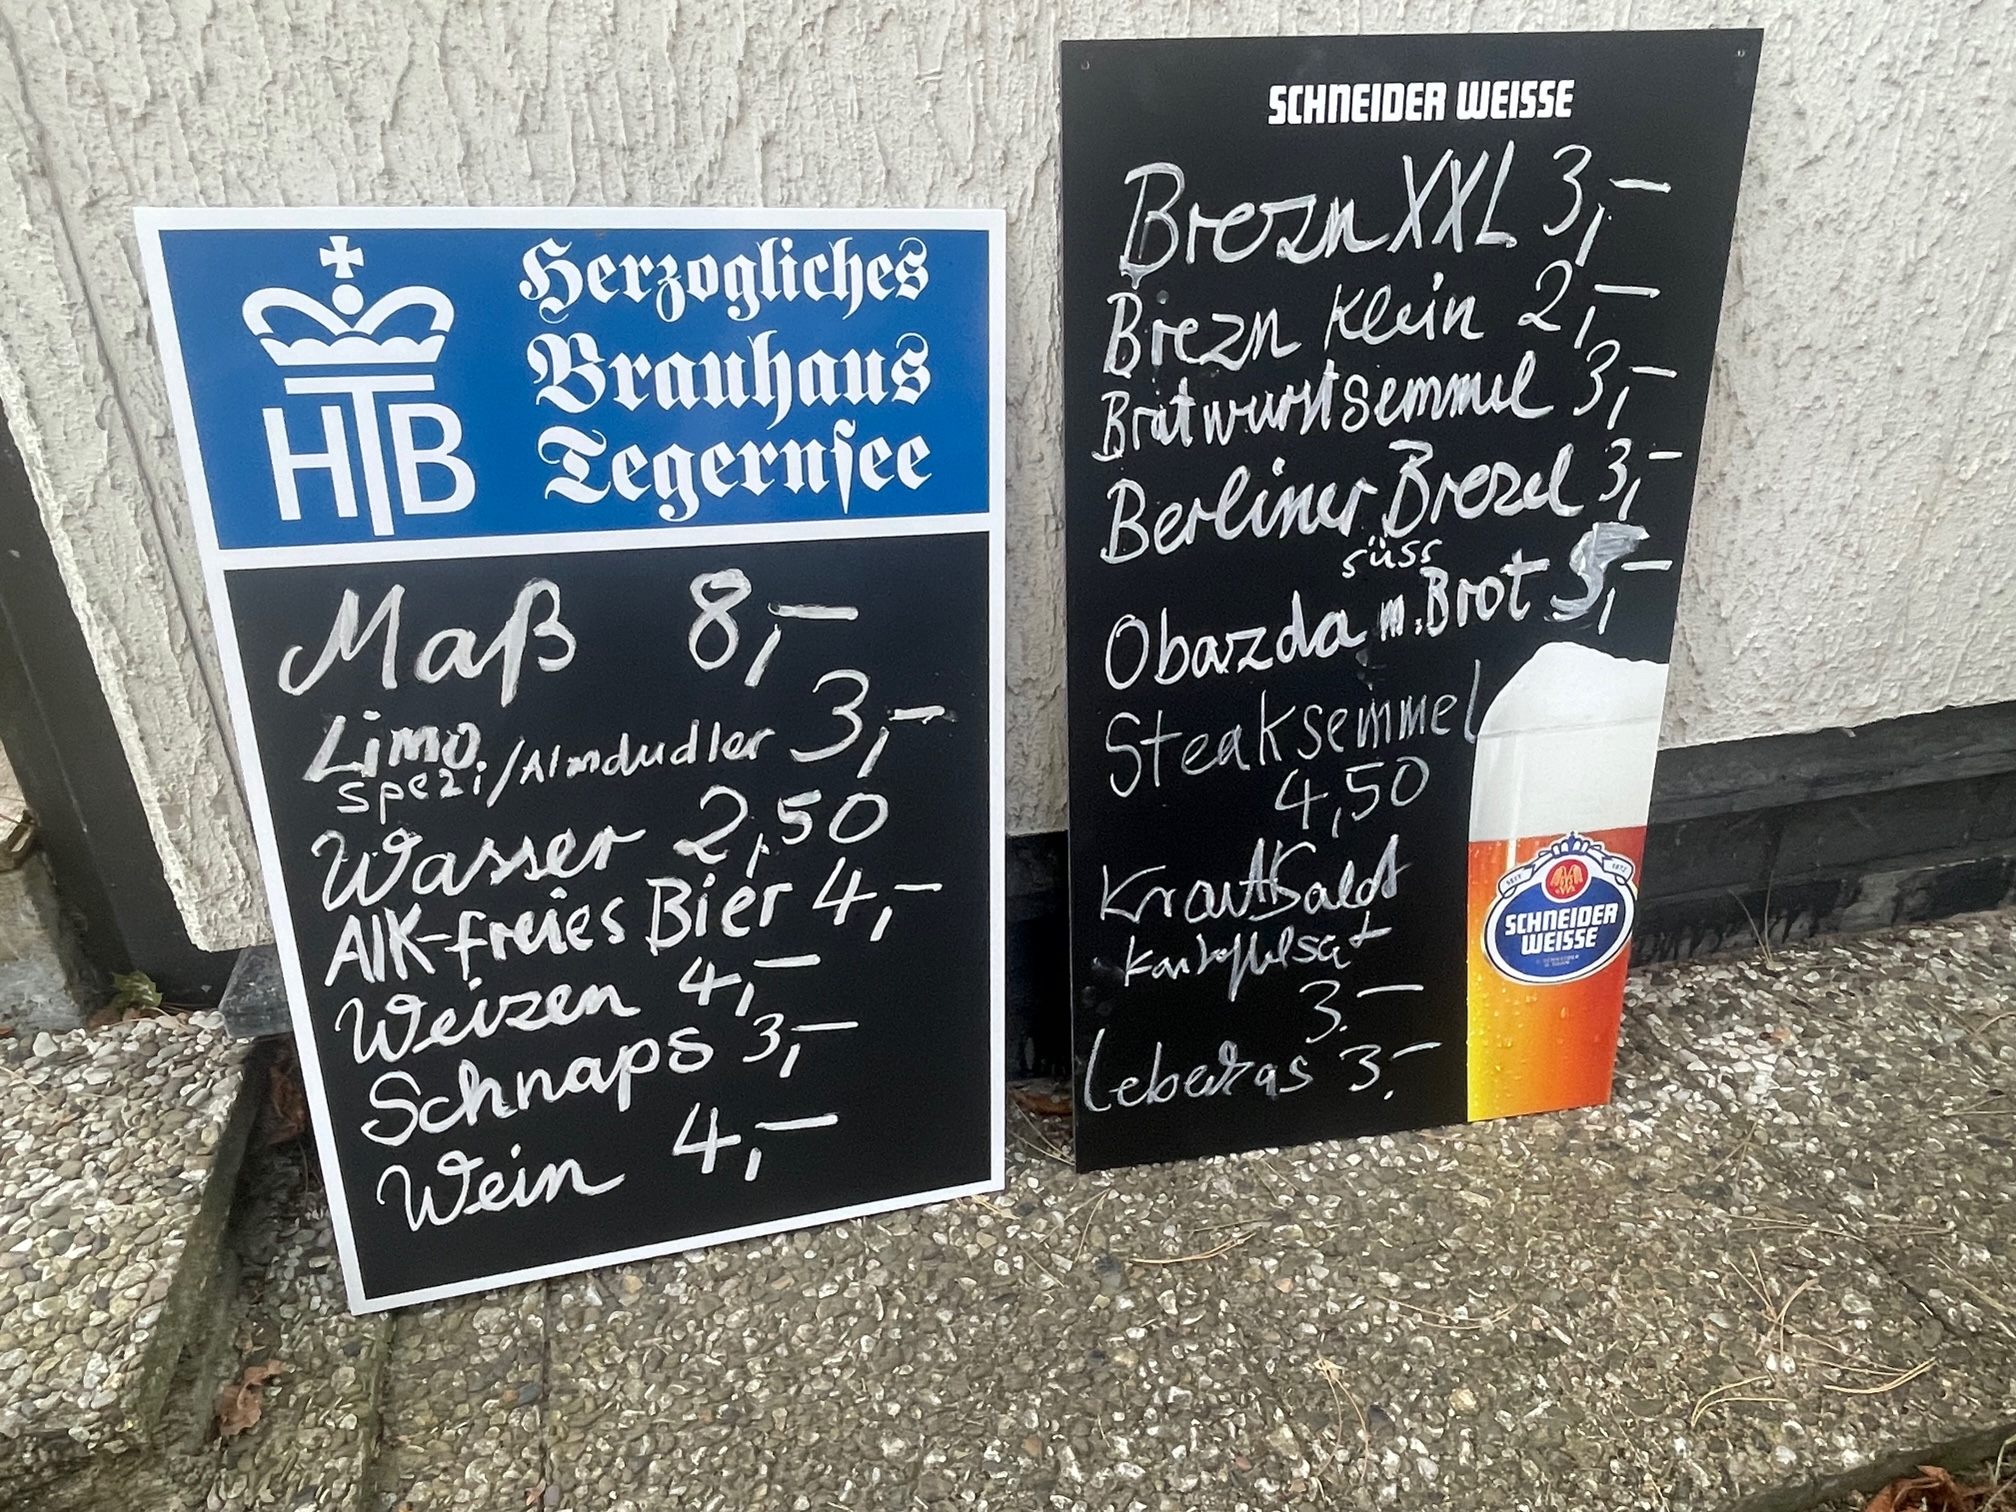 Herzogliches
Brauhaus
Tegernsee
HTB
Maß 8,-
Limo 3,-
Spezi/Almdudler
Wasser 2,50
Alk-freies Bier 4,-
Weizen 4,-
Schnaps 3,-
Wein 4,-
SCHNEIDER WEISSE
Brezn XXL 3,-
Brezn Klein 2,-
Bratwurstsemmel 3,-
Berliner Brezel 3,-
süss
Obazda m. Brot 5,-
Steaksemmel
4,50
Krautsalat
Kartoffelsat
3.-
Leberkas 3.-
SEIT 1872
SCHNEIDER
WEISSE